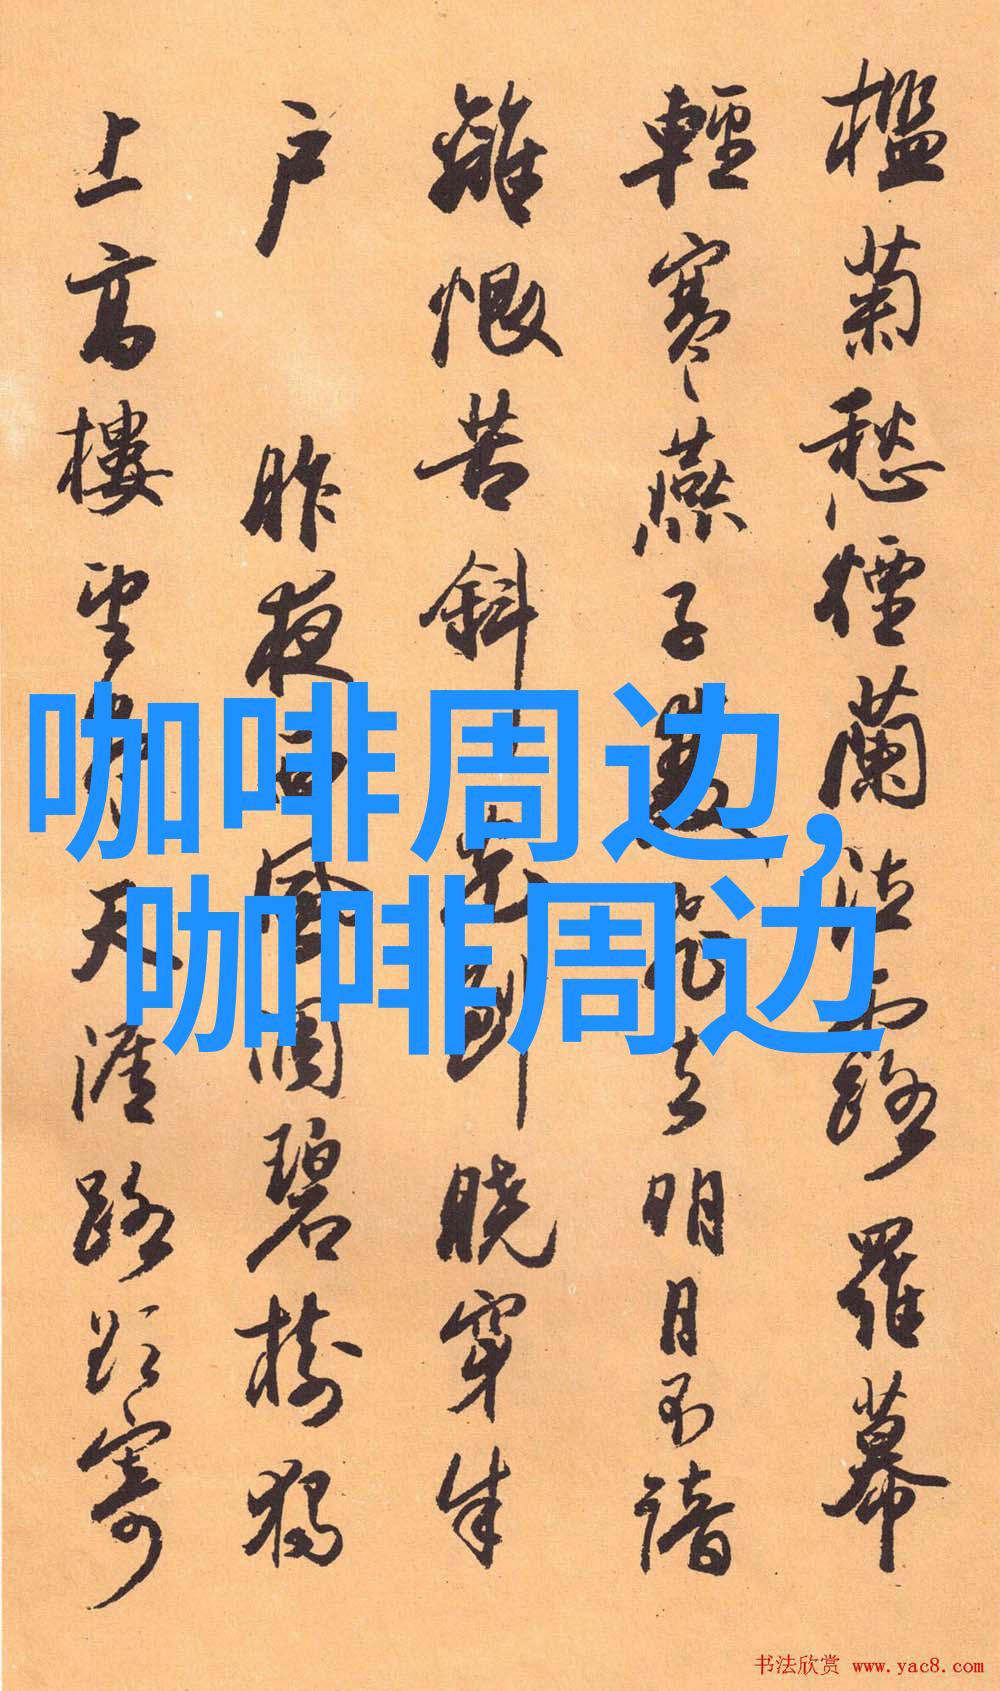 檻菊愁煙蘭泣露羅幕
輕寒燕子雙飛去明月不諳
離恨苦斜光到曉穿朱
户 昨夜西風凋碧樹獨
上高樓望盡天涯路欲寄
咖啡周边,
咖啡周边
书法欣赏 www.yac8.com